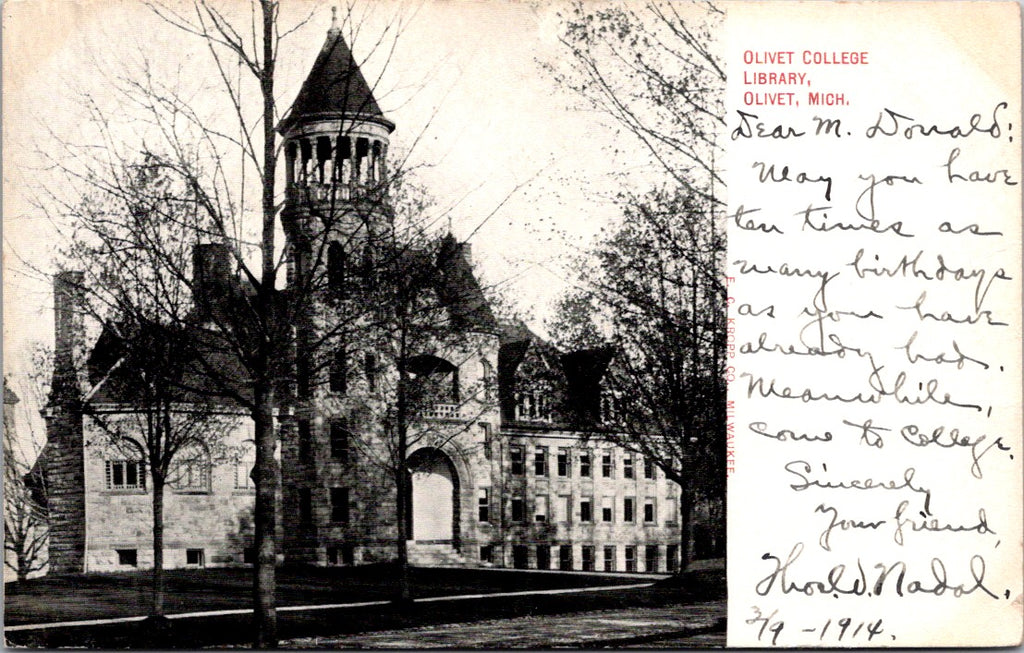 OLIVET COLLEGE
LIBRARY,
OLIVET, MICH.
Dear M. Donald:
May you have
ten times as
many birthdays
as you have
already had.
Meanwhile,
come to college.
Sincerely
Your friend,
Thos. W. Nadal.
3/9 - 1914.
E. C. KROPP CO. MILWAUKEE